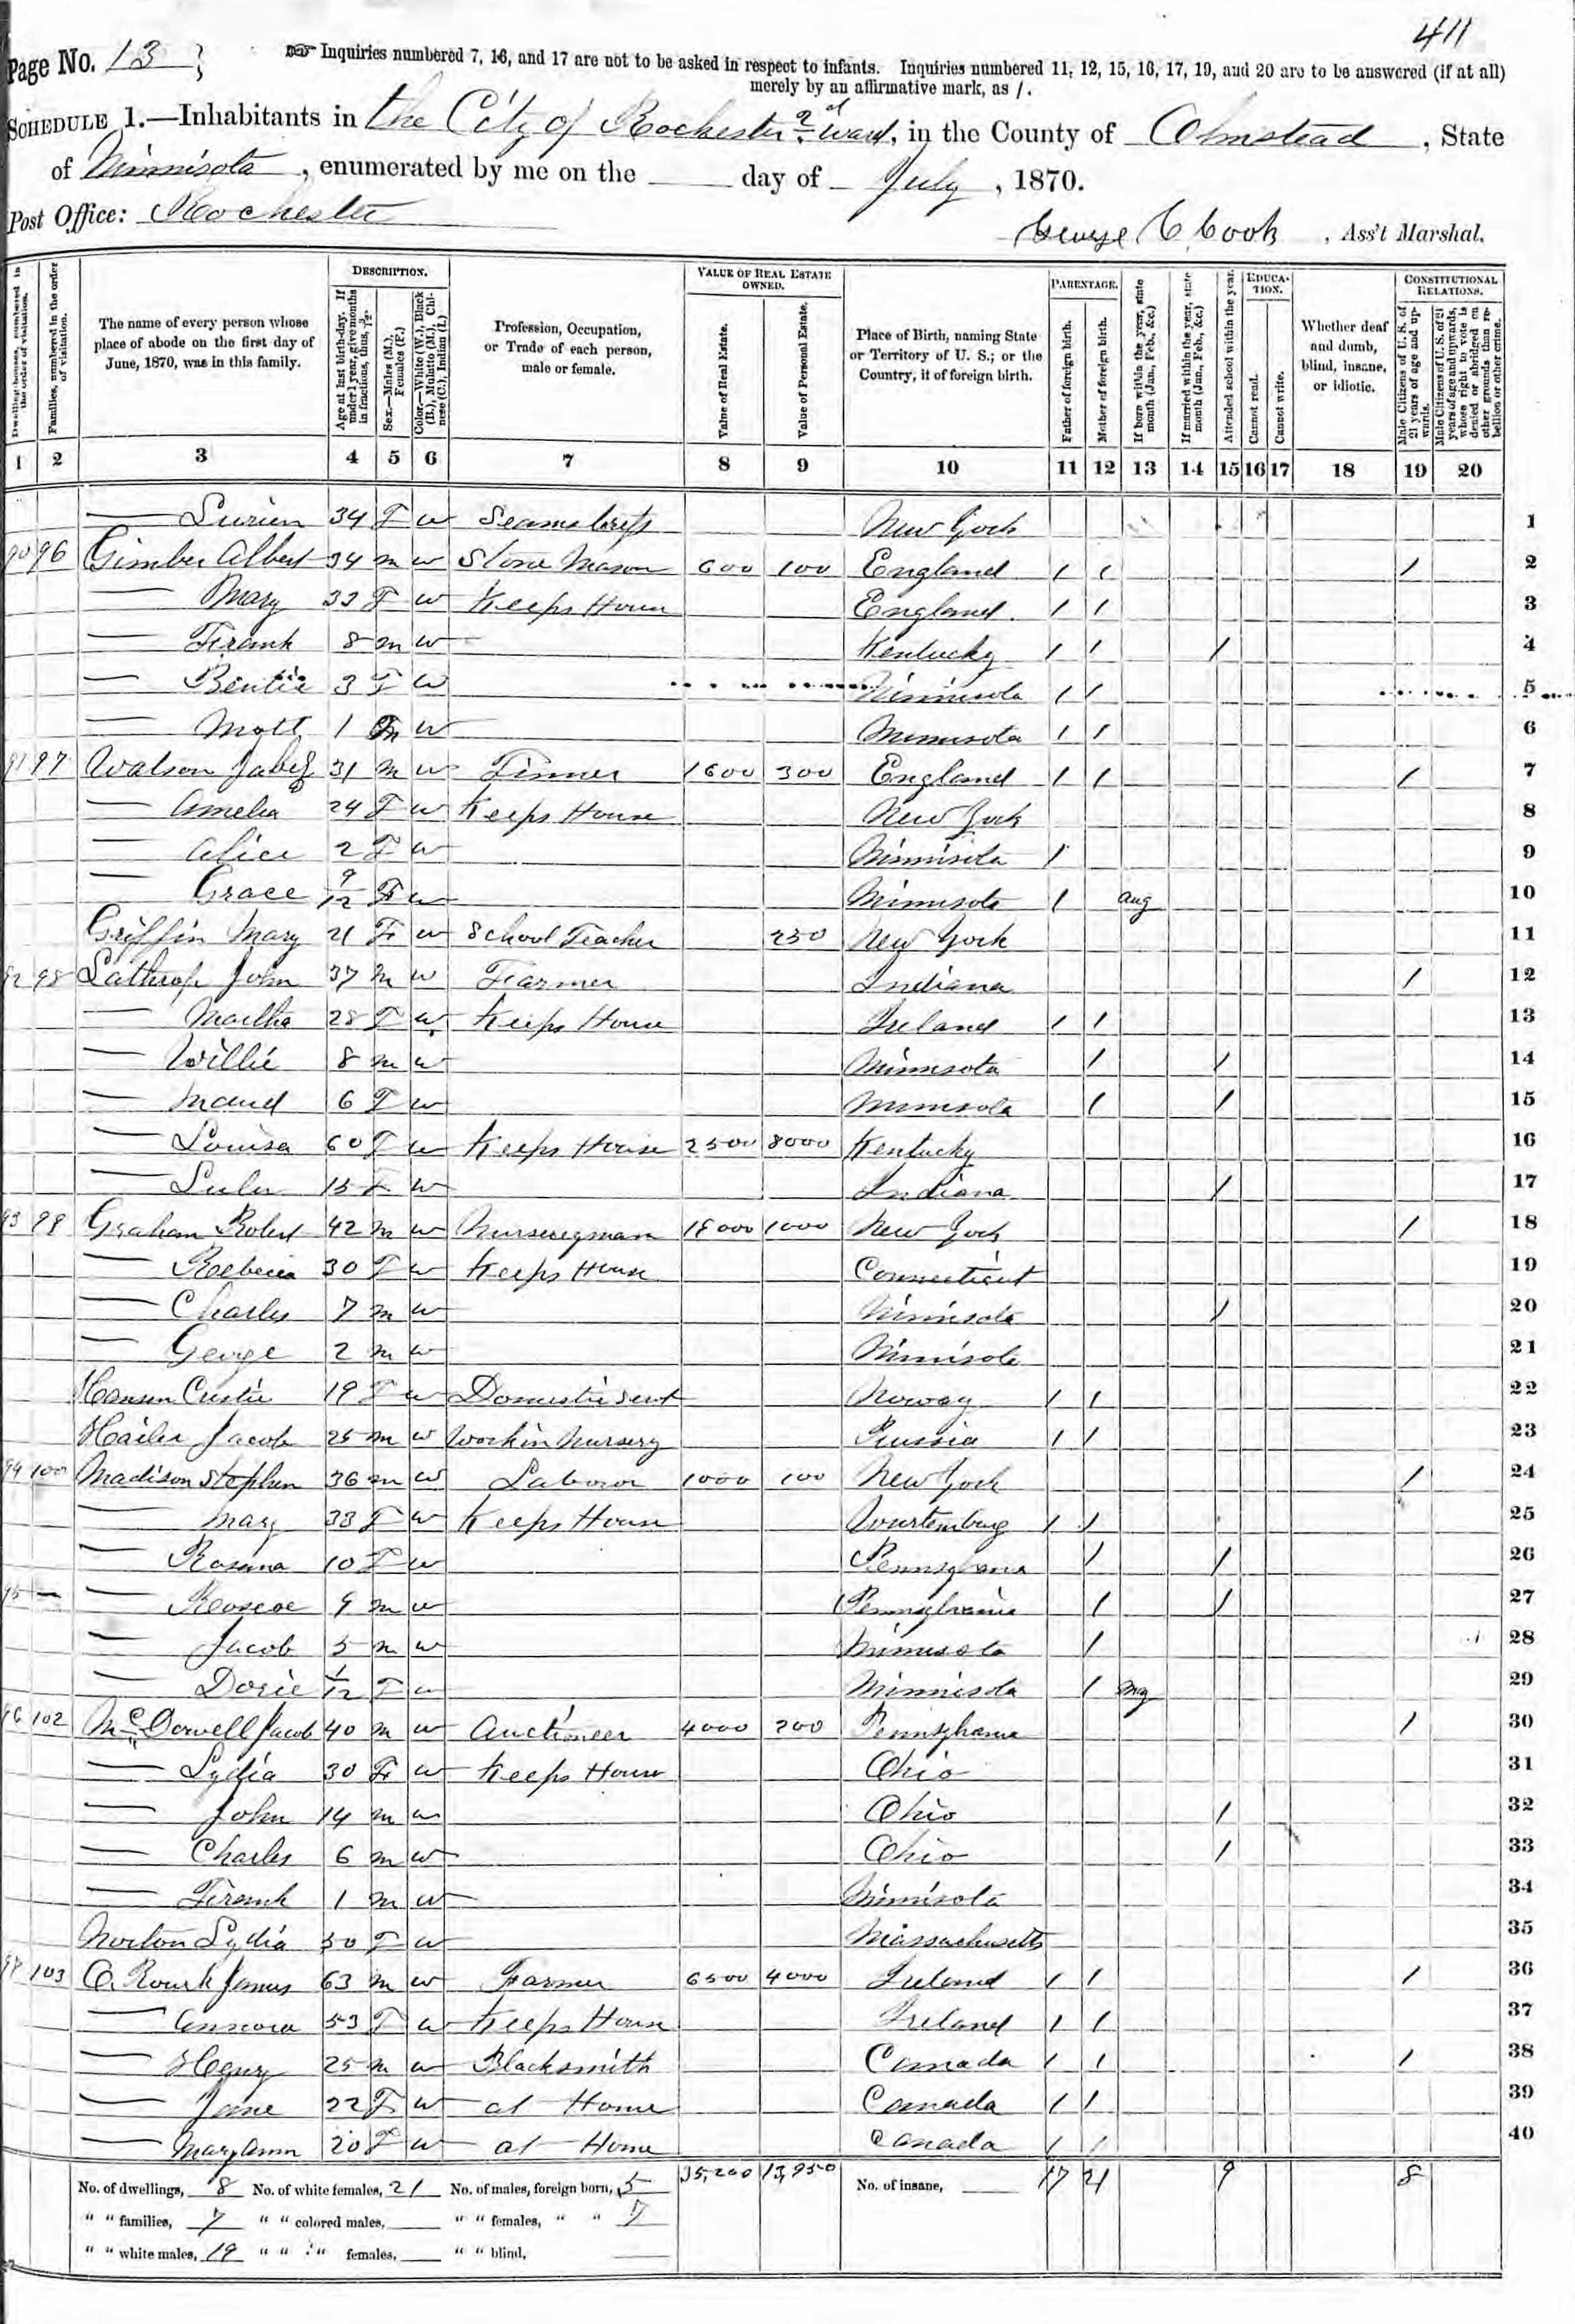 411
Page No. 13
Inquiries numbered 7, 16, and 17 are not to be asked in respect to infants. Inquiries numbered 11, 12, 15, 16, 17, 19, and 20 are to be answered (if at all)
merely by an affirmative mark, as /.
SCHEDULE 1.—Inhabitants in the City of Rochester 2d Ward, in the County of Olmstead, State
of Minnisota, enumerated by me on the day of July, 1870.
Post Office: Rochester
George C Cook, Ass't Marshal.
Dwelling-houses, numbered in the order of visitation.
Families, numbered in the order of visitation.
The name of every person whose place of abode on the first day of June, 1870, was in this family.
DESCRIPTION.
Age at last birth-day. If under 1 year, give months in fractions, thus, 3/12.
Sex.—Males (M.), Females (F.)
Color.—White (W.), Black (B.), Mulatto (M.), Chinese (C.), Indian (I.)
Profession, Occupation, or Trade of each person, male or female.
VALUE OF REAL ESTATE OWNED.
Value of Real Estate.
Value of Personal Estate.
Place of Birth, naming State or Territory of U. S.; or the Country, if of foreign birth.
PARENTAGE.
Father of foreign birth.
Mother of foreign birth.
If born within the year, state month (Jan., Feb., &c.)
If married within the year, state month (Jan., Feb., &c.)
Attended school within the year.
EDUCATION.
Cannot read.
Cannot write.
Whether deaf and dumb, blind, insane, or idiotic.
CONSTITUTIONAL RELATIONS.
Male Citizens of U. S. of 21 years of age and upwards.
Male Citizens of U. S. of 21 years of age and upwards, whose right to vote is denied or abridged on other grounds than rebellion or other crime.
1 2 3 4 5 6 7 8 9 10 11 12 13 14 15 16 17 18 19 20
— 34 F W Seamstress New York 1
90 96 Gimber Albert 34 M W Stone Mason 600 100 England / / / 2
— Mary 33 F W Keeps House England / / 3
— Frank 8 M W Kentucky / / / 4
— Bentie 3 F W Minnisota / / 5
— Mott 1 M W Minnisota / / 6
91 97 Watson Jabez 31 M W Tinner 1600 300 England / / / 7
— Amelia 24 F W Keeps House New York 8
— Alice 2 F W Minnisota / 9
— Grace 9/12 F W Minnisota / Aug 10
Griffin Mary 21 F W School Teacher 250 New York 11
92 98 Lathrop John 37 M W Farmer Indiana / 12
— Martha 28 F W Keeps House Ireland / / 13
— Willie 8 M W Minnisota / / 14
— Maud 6 F W Minnisota / / 15
— Louisa 60 F W Keeps House 2500 8000 Kentucky 16
— Lulu 15 F W Indiana / 17
93 99 Graham Robert 42 M W Nurseryman 18000 1000 New York / 18
— Rebecca 30 F W Keeps House Connecticut 19
— Charles 7 M W Minnisota / 20
— George 2 M W Minnisota 21
Hanson Custie 19 F W Domestic Servt Norway / / 22
Hailer Jacob 25 M W Work in Nursery / / 23
94 100 Madison Stephen 36 M W Laborer 1000 100 New York / 24
— Mary 33 F W Keeps House Wurtemburg / / 25
— Rosana 10 F W Pennsylvania / / 26
95 — — Roscoe 9 M W Pennsylvania / / 27
— Jacob 5 M W Minnisota / 28
— Dorie 1/12 F W Minnisota / May 29
96 102 McDowell Jacob 40 M W Auctioneer 4000 200 Pennsylvania / 30
— Lydia 30 F W Keeps House Ohio 31
— John 14 M W Ohio / 32
— Charles 6 M W Ohio / 33
— Frank 1 M W Minnisota 34
Norton Lydia 50 F W Massachusetts 35
97 103 O. Rourk James 63 M W Farmer 6500 4000 Ireland / / / 36
— Annora 53 F W Keeps House Ireland / / 37
— Henry 25 M W Blacksmith Canada / / / 38
— Jane 22 F W at Home Canada / / 39
— Mary Ann 20 F W at Home Canada / / 40
No. of dwellings, 8 No. of white females, 21 No. of males, foreign born, 5 35,200 13,950 No. of insane, 17 21 9 8
" " families, 7 " " colored males, " " females, " " 7
" " white males, 19 " " " females, " " blind,